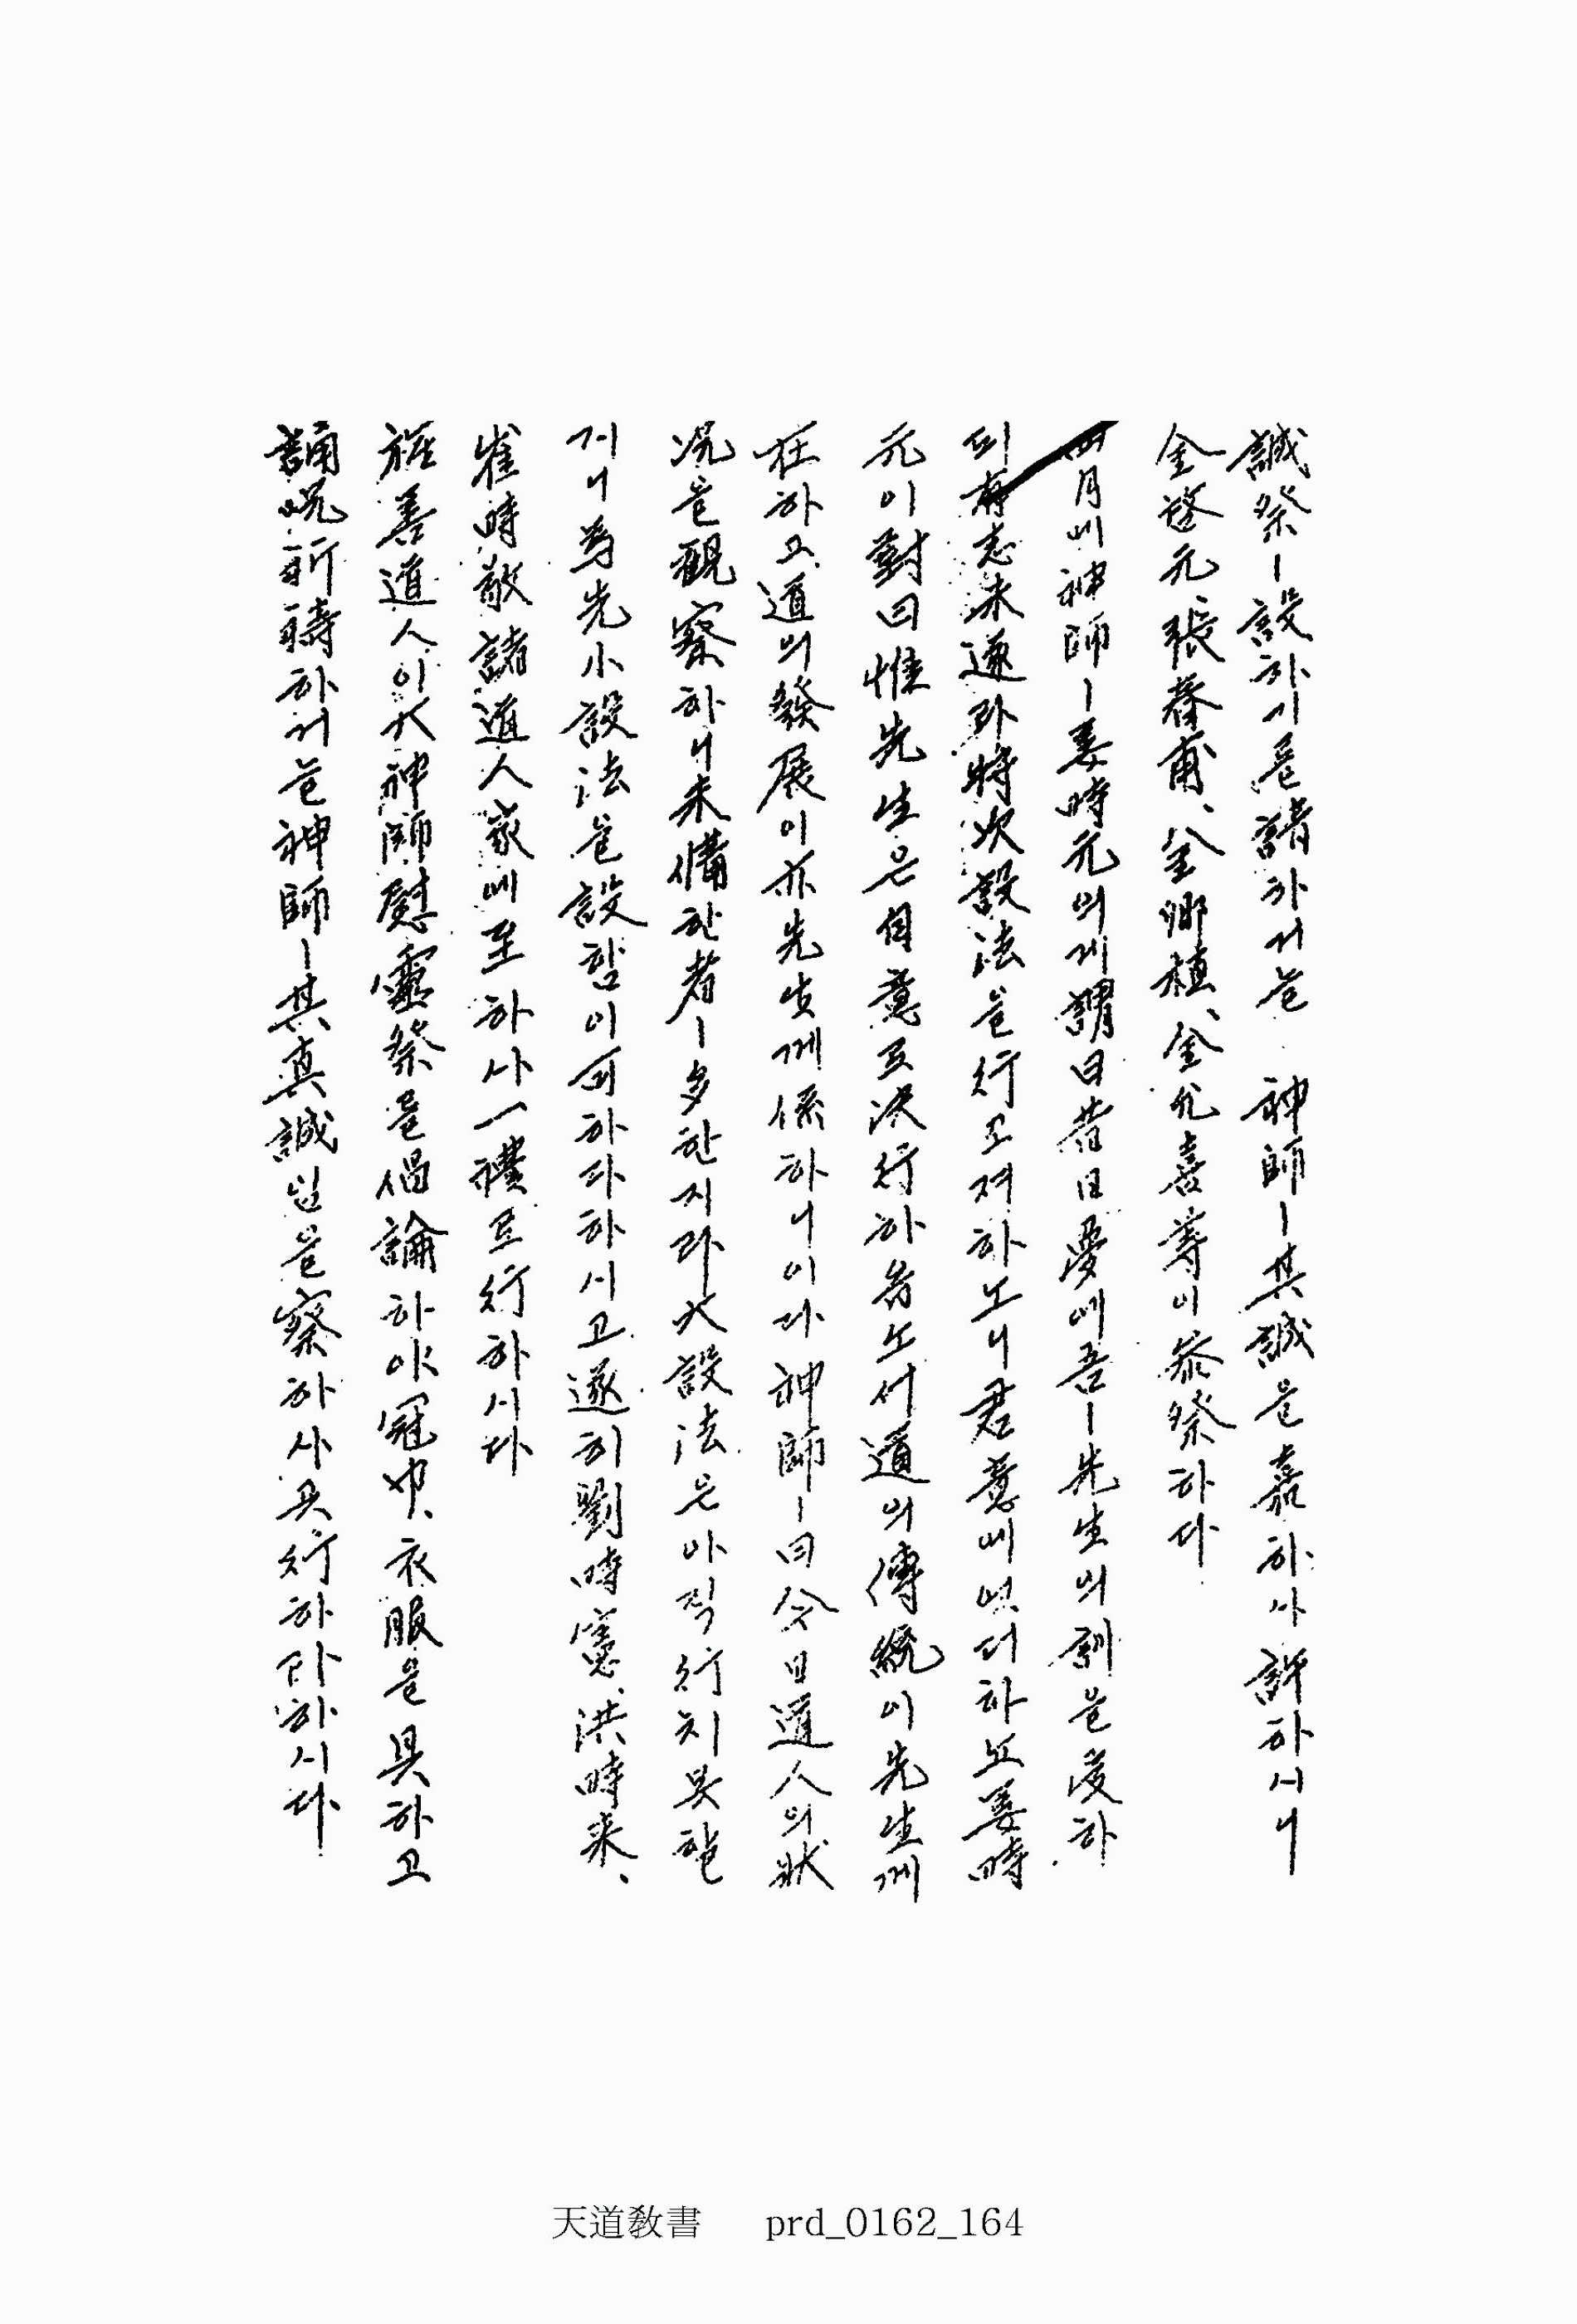 誠祭ㅣ設하기를請하거늘 神師ㅣ其誠을嘉하사許하시니
金啓元、張春甫、金卿植、金允喜等이參祭하다
四月에神師ㅣ姜時元의게謂曰昔日夢에吾ㅣ先生의訓을受하
되有志未遂라將次設法을行고져하노니君意에엇더하뇨姜時
元이對曰惟先生은自意로決行하쇼서道의傳統이先生께
在하고道의發展이亦先生께係하니이다神師ㅣ曰今日道人의狀
況을觀察하니未備한者ㅣ多한지라大設法은아직行치못할
지니爲先小設法을設함이可하다하시고遂히劉時憲、洪時來、
崔時敬諸道人家에至하사一禮로行하시다
旌善道人이大神師慰靈祭를倡論하야冠巾、衣服을具하고
誦呪祈禱하거늘神師ㅣ其眞誠임을察하사又行하라하시다
天道敎書 prd_0162_164